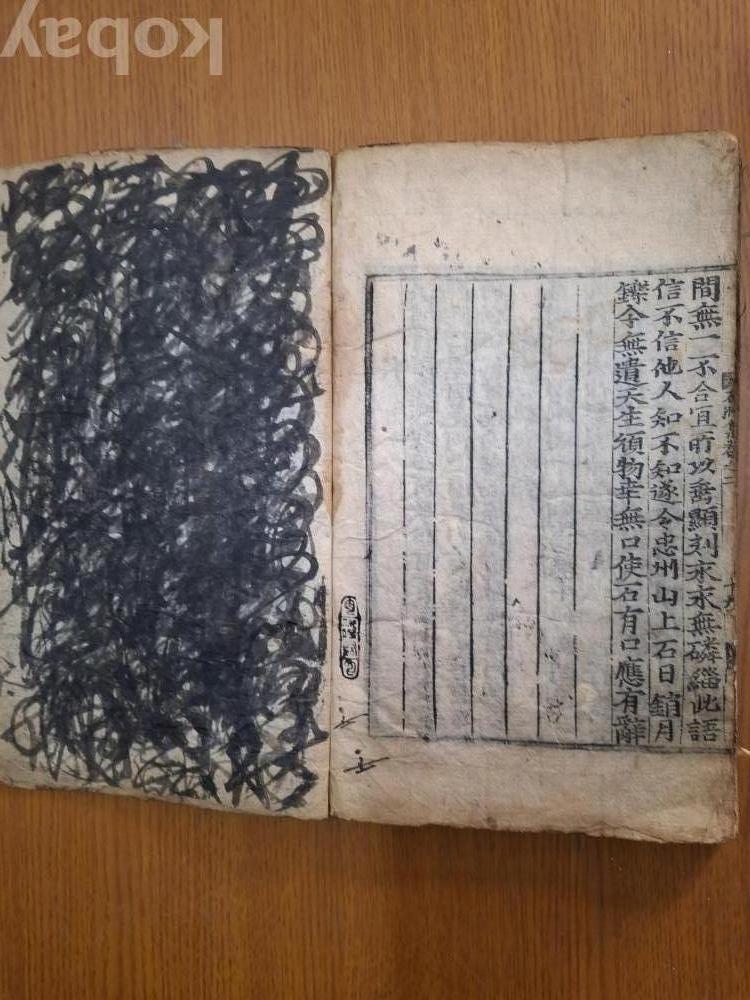 kobay
間無一不合宜所以垂顯刻永永無磷緇此語
信不信他人知不知遂令忠州山上石日銷月
鑠今無遺天生頑物幸無口使石有口應有辭